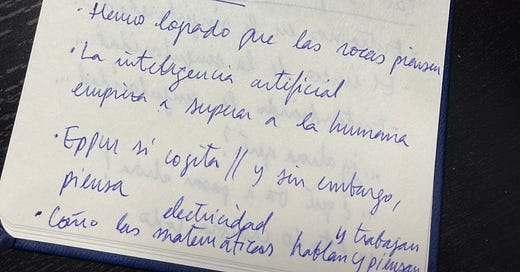 · Hemos logrado que las rocas piensen
· La inteligencia artificial
empieza a superar a la humana
· Eppur si cogita // y sin embargo,
piensa
electricidad y trabajan
· Cómo las matemáticas hablan y piensan